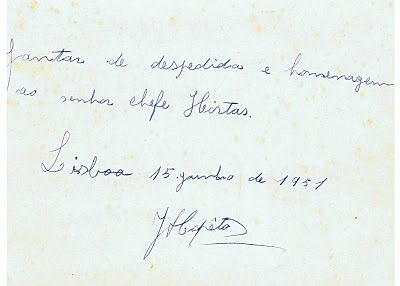 Jantar de despedida e homenagem
ao senhor chefe Hortas.
Lisboa 15 junho de 1951